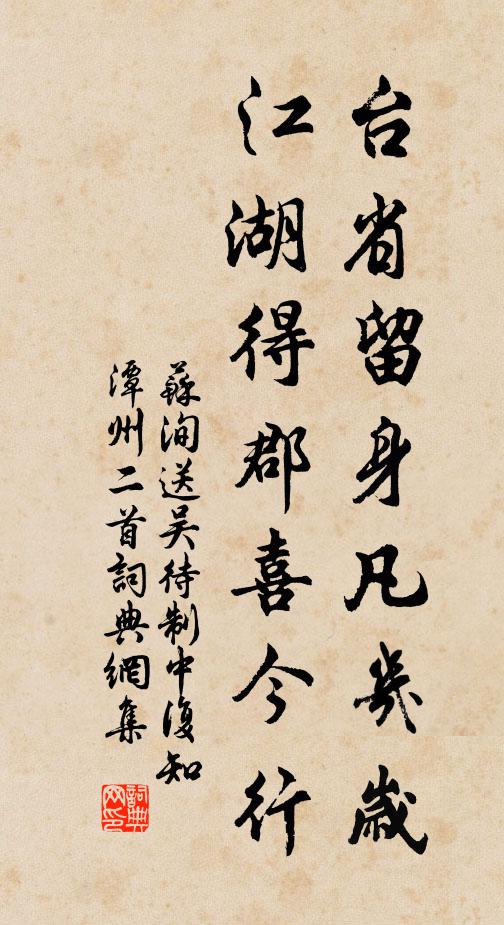 台省留身凡幾歲
江湖得郡喜今行
蘇洵送吴待制中復知
潭州二首詞典網集
詞典网印